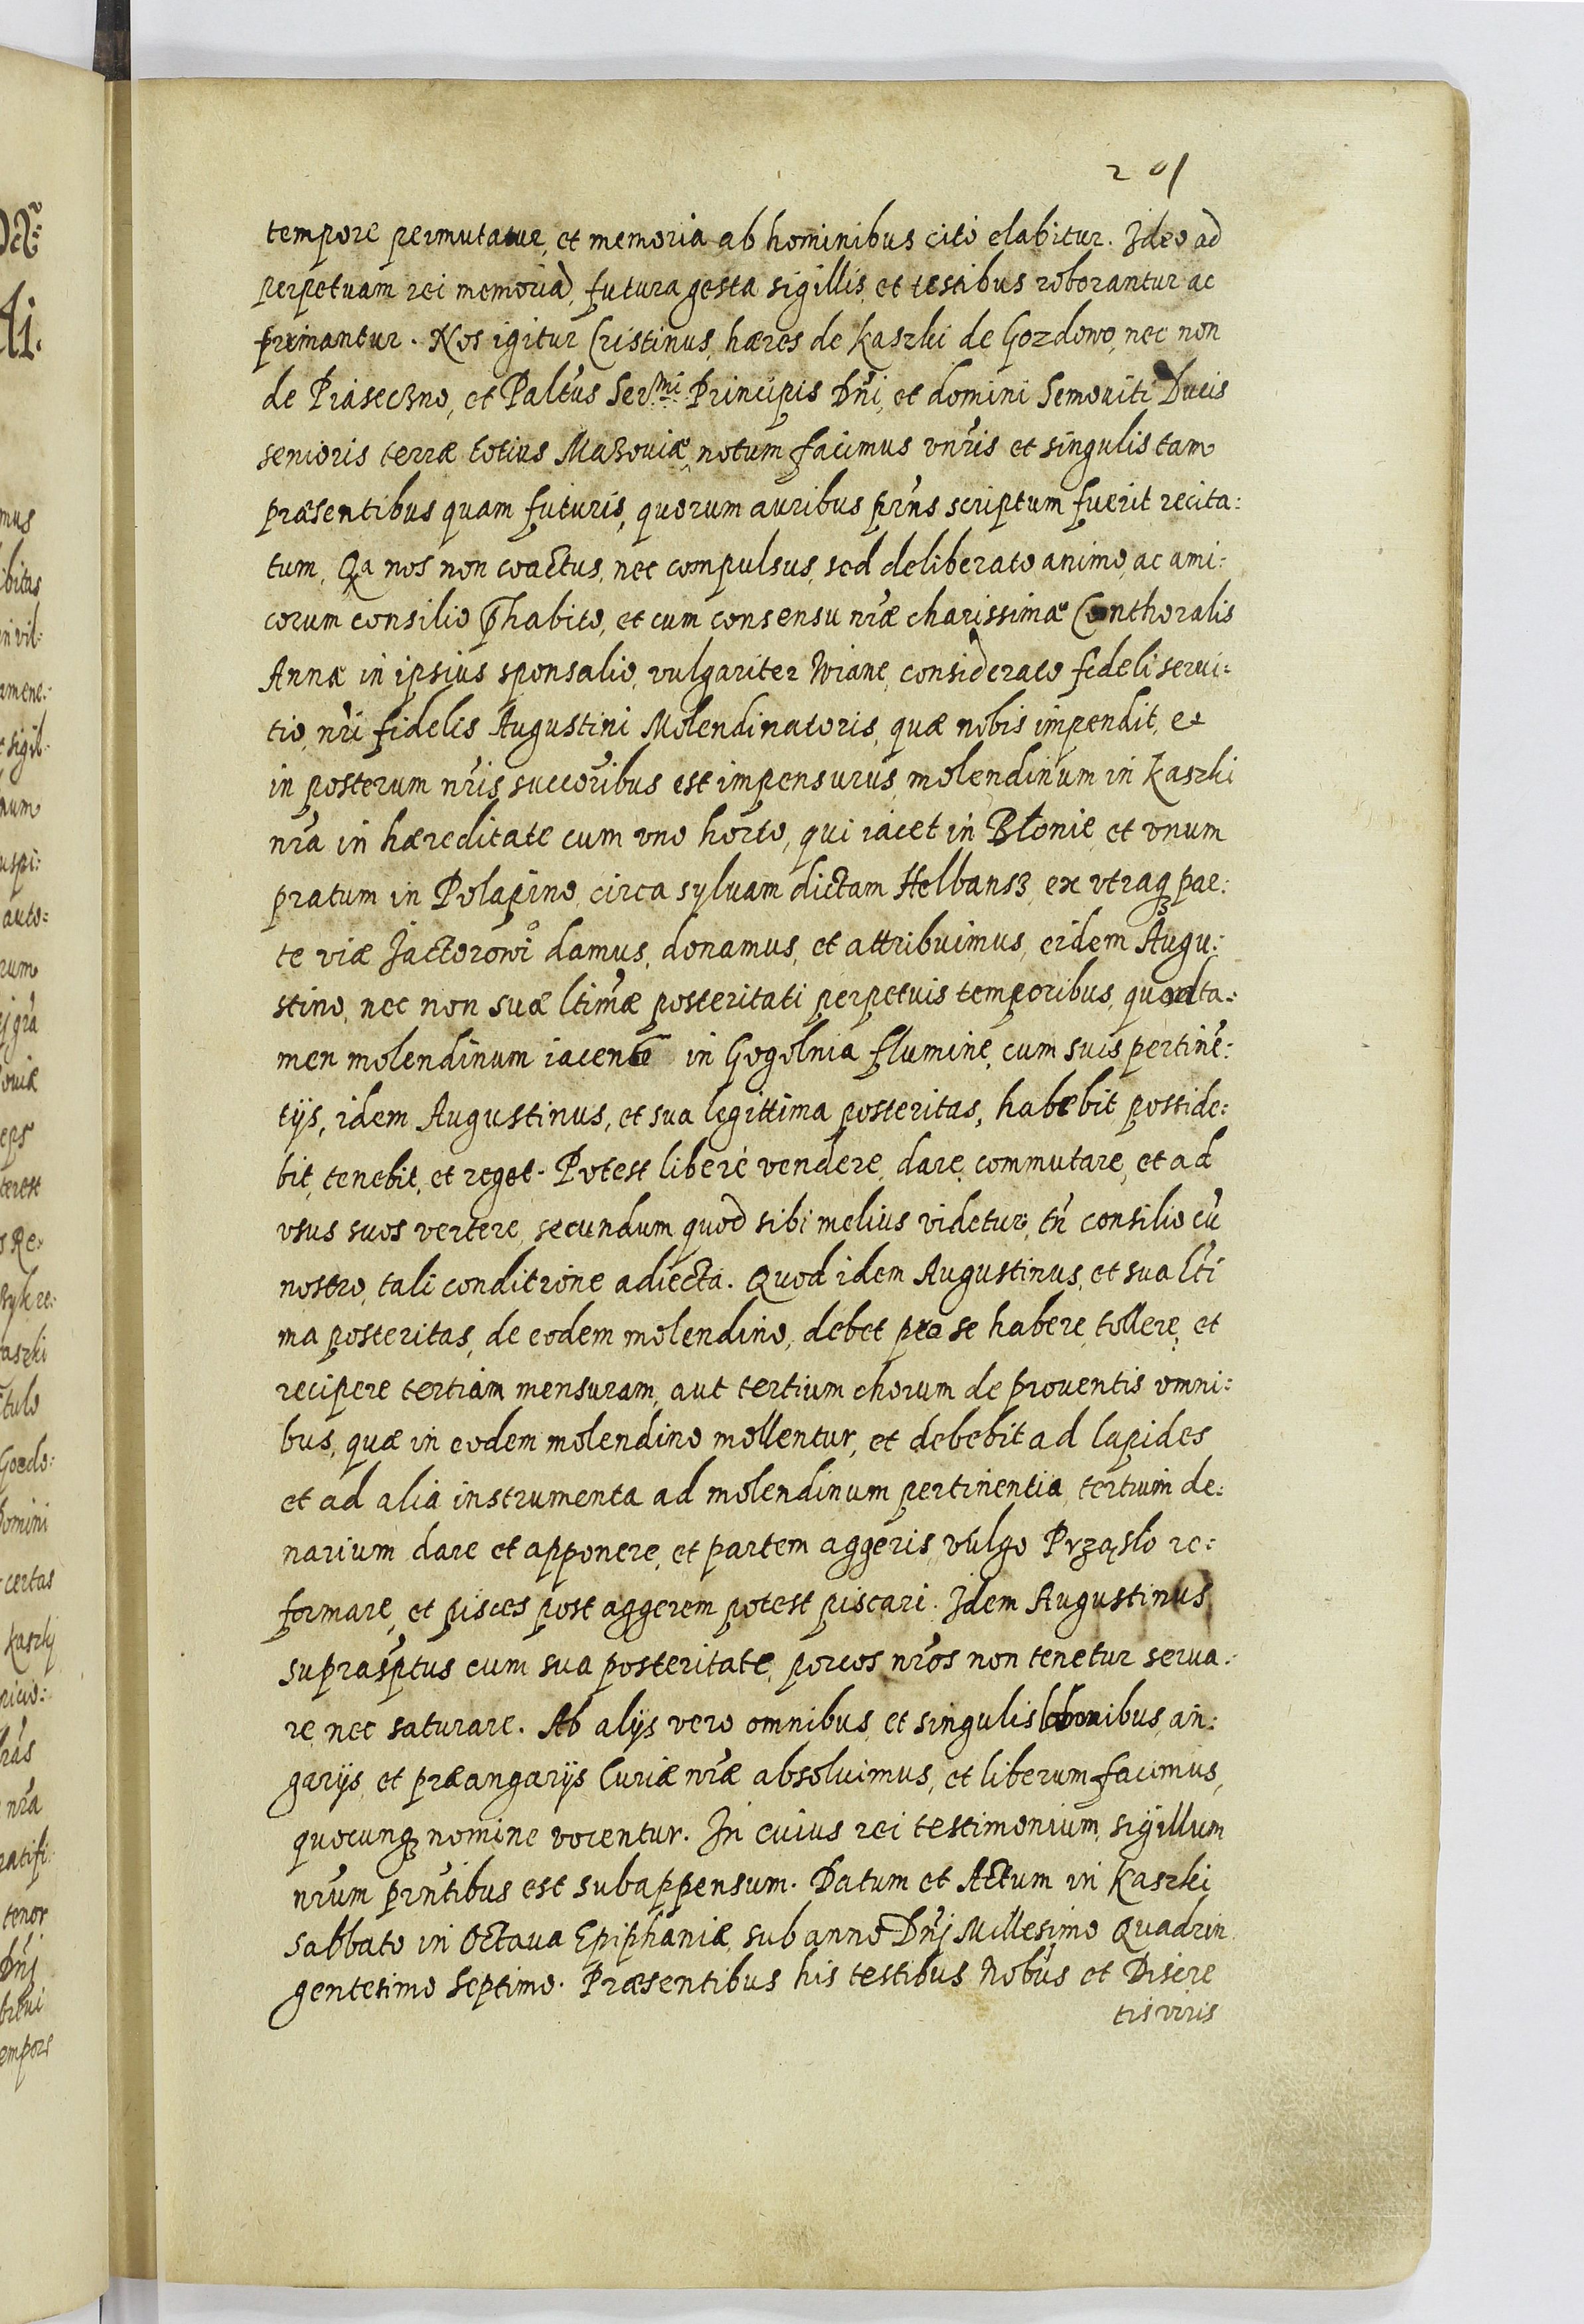 201
tempore permutatur, et memoria ab hominibus cito elabitur. Ideo ad
perpetuam rei memoriã, futura gesta sigillis, et testibus roborantur ac
firmantur. Nos igitur Cristinus, hæres de Kaszki de Gozdowo, nec non
de Piaseczno, et Paltũs Ser.mi Principis Dñi, et domini Semoviti Ducis
senioris terræ totius Mazouiæ, notum facimus vñris et singulis tam
præsentibus quam futuris, quorum auribus pr̃ns scriptum fuerit recita:
tum, Qa nos non coactus, nec compulsus, sed deliberato animo, ac ami:
corum consilio p̃habito, et cum consensu nr̃æ charissimæ Conthoralis
Annæ in ipsius sponsalio, vulgariter Wiane, considerato fideli serui:
tio, nr̃i fidelis Augustini Molendinatoris, quæ nobis impendit, et
in posterum nr̃is succoribus est impensurus, molendinum in Kaszki
nr̃a in hæreditate cum vno horto, qui iacet in Błonie, et vnum
pratum in Polapino, circa syluam dictam Helbansz, ex vtraqꝫ par:
te viæ Jactorowi damus, donamus, et attribuimus, eidem Augu:
stino, nec non suæ ltim̃æ posteritati perpetuis temporibus, quod ta:
men molendinum iacente in Gogolnia flumine, cum suis pertinẽ:
tijs, idem Augustinus, et sua legittima posteritas, habebit posside:
bit, tenebit, et reget. Potest liberè vendere, dare, commutare, et ad
vsus suos vertere, secundum quod sibi melius videtur, tñ consilio cũ
nostro, tali conditione adiecta. Quod idem Augustinus, et sua lti
ma posteritas, de eodem molendino, debet pro se habere, tollere, et
recipere tertiam mensuram, aut tertium chorum de prouentis omni:
bus, quæ in eodem molendino mollentur, et debebit ad lapides
et ad alia instrumenta ad molendinum pertinentia, tertium de:
narium dare et apponere, et partem aggeris, vulgo Prząslo re:
formare, et pisces post aggerem potest piscari. Idem Augustinus
suprasp̃tus cum sua posteritate, porcos nr̃os non tenetur serua:
re, nec saturare. Ab alijs vero omnibus, et singulis laboribus, an:
garijs, et præangarijs Curiæ nr̃æ absoluimus, et liberum facimus,
quocunqꝫ nomine vocentur. In cuius rei testimonium, sigillum
nr̃um pr̃ntibus est subappensum. Datum et Actum in Kaszki
sabbato in Octaua Epiphaniæ, sub anno Dñj Millesimo Quadrin
gentesimo Septimo. Præsentibus his testibus Nobũs et Discre
tis viris